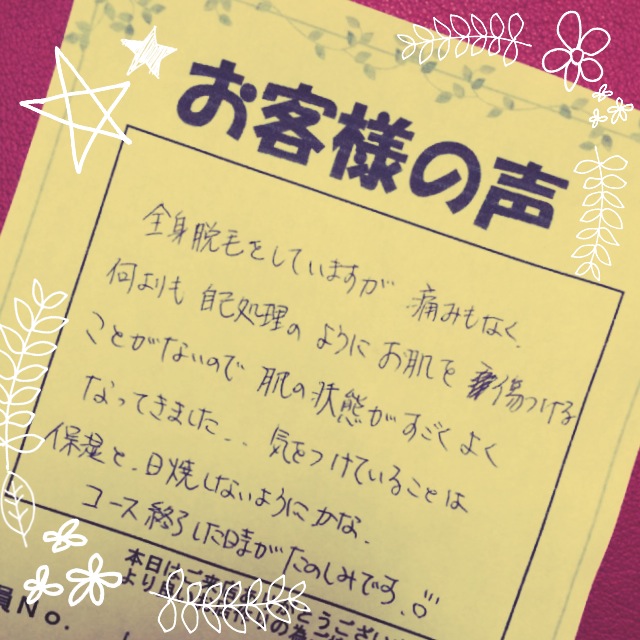 お客様の声
全身脱毛をしていますが 痛みもなく、
何よりも 自己処理の ように お肌を 傷つける
ことがないので 肌の状態が すごく よく
なってきました... 気をつけていることは
保湿と、日焼しないように かな。
コース終了した時が たのしみです。
本日は
より
員No.